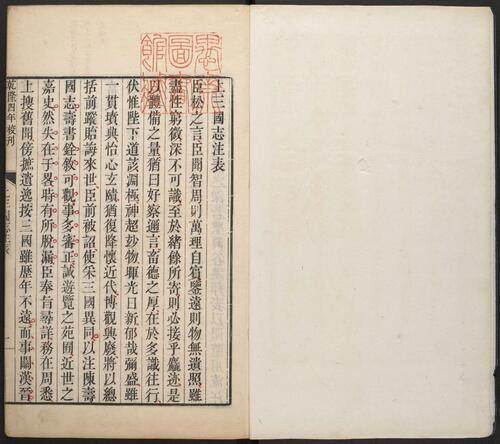 上三國志注表
臣松之言臣聞智周則萬理自賓鑒遠則物無遺照雖
盡性窮微深不可識至於緒餘所寄則必接乎麤迹是
以體備之量猶曰好察邇言畜德之厚在於多識往行
伏惟陛下道該淵極神超妙物暉光日新郁哉彌盛雖
一貫墳典怡心玄賾猶復降懷近代博觀興廢將以總
括前蹤貽誨來世臣前被詔使采三國異同以注陳壽
國志壽書銓敘可觀事多審正誠遊覽之苑囿近世之
嘉史然失在于略時有所脫漏臣奉旨尋詳務在周悉
上搜舊聞傍摭遺逸按三國雖歷年不遠而事關漢晉
乾隆四年校刊